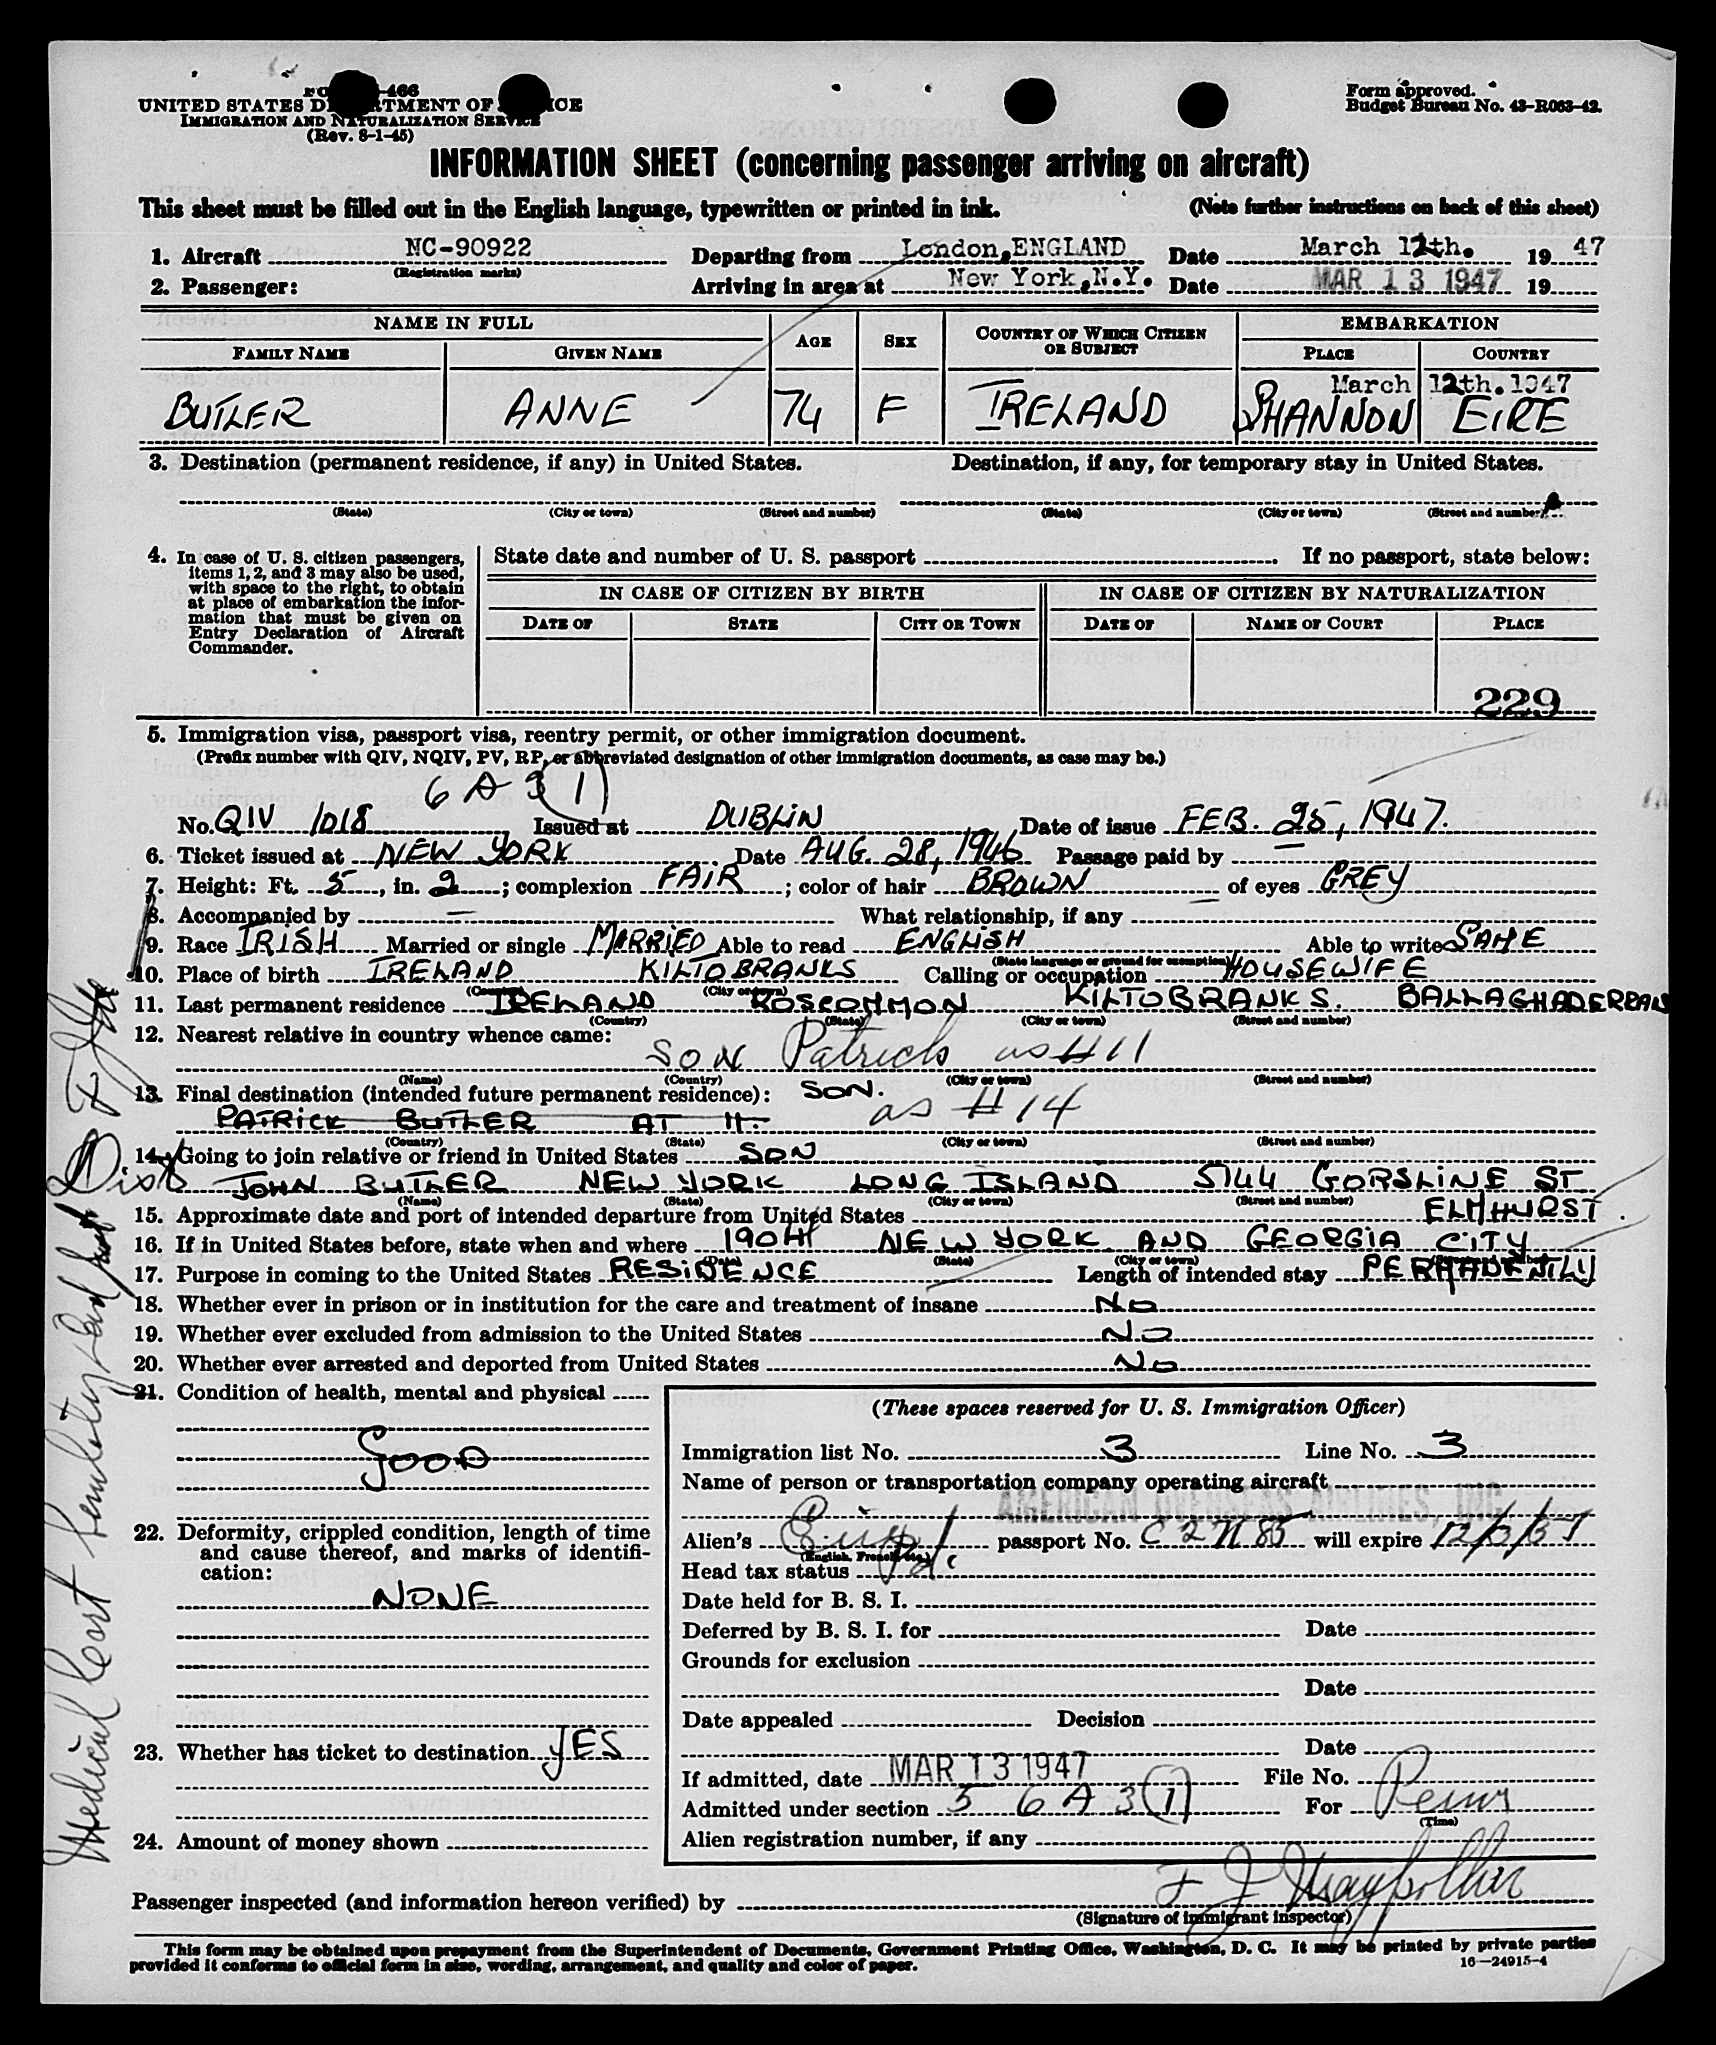 FO -466
UNITED STATES DEPARTMENT OF JUSTICE
IMMIGRATION AND NATURALIZATION SERVICE
(Rev. 8-1-45)
Form approved.
Budget Bureau No. 43-R063-42.
INFORMATION SHEET (concerning passenger arriving on aircraft)
This sheet must be filled out in the English language, typewritten or printed in ink. (Note further instructions on back of this sheet)
1. Aircraft NC-90922 Departing from London,ENGLAND Date March 12th. 19 47
(Registration marks)
2. Passenger: Arriving in area at New York,N.Y. Date MAR 13 1947 19
NAME IN FULL AGE SEX COUNTRY OF WHICH CITIZEN OR SUBJECT EMBARKATION
FAMILY NAME GIVEN NAME PLACE COUNTRY
March 12th.1947
BUTLER ANNE 74 F IRELAND SHANNON EIRE
3. Destination (permanent residence, if any) in United States. Destination, if any, for temporary stay in United States.
(State) (City or town) (Street and number) (State) (City or town) (Street and number)
4. In case of U. S. citizen passengers, items 1, 2, and 3 may also be used, with space to the right, to obtain at place of embarkation the information that must be given on Entry Declaration of Aircraft Commander.
State date and number of U. S. passport If no passport, state below:
IN CASE OF CITIZEN BY BIRTH IN CASE OF CITIZEN BY NATURALIZATION
DATE OF STATE CITY OR TOWN DATE OF NAME OF COURT PLACE
229
5. Immigration visa, passport visa, reentry permit, or other immigration document.
(Prefix number with QIV, NQIV, PV, RP, or abbreviated designation of other immigration documents, as case may be.)
6 A 3 (1)
No. QIV 1018 Issued at DUBLIN Date of issue FEB. 25, 1947.
6. Ticket issued at NEW YORK Date AUG. 28, 1946 Passage paid by —
7. Height: Ft. 5, in. 2; complexion FAIR; color of hair BROWN of eyes GREY
8. Accompanied by — What relationship, if any —
9. Race IRISH Married or single MARRIED Able to read ENGLISH Able to write SAME
(State language or ground for exemption)
10. Place of birth IRELAND KILTOBRANKS Calling or occupation HOUSEWIFE
(Country) (City or town)
11. Last permanent residence IRELAND ROSCOMMON KILTOBRANKS. BALLAGHADERRAN
(Country) (State) (City or town) (Street and number)
12. Nearest relative in country whence came:
SON Patrick as #11
(Name) (Country) (City or town) (Street and number)
13. Final destination (intended future permanent residence): SON.
PATRICK BUTLER AT 11. as #14
(Country) (State) (City or town) (Street and number)
14. Going to join relative or friend in United States SON
JOHN BUTLER NEW YORK LONG ISLAND 5144 GORSLINE ST
(Name) (State) (City or town) (Street and number)
ELMHURST.
15. Approximate date and port of intended departure from United States
16. If in United States before, state when and where 1904 NEW YORK AND GEORGIA CITY
(Date) (State) (City or town) (Street and number)
17. Purpose in coming to the United States RESIDENCE Length of intended stay PERMANENTLY
18. Whether ever in prison or in institution for the care and treatment of insane NO
19. Whether ever excluded from admission to the United States NO
20. Whether ever arrested and deported from United States NO
21. Condition of health, mental and physical
GOOD
22. Deformity, crippled condition, length of time and cause thereof, and marks of identification:
NONE
23. Whether has ticket to destination YES
24. Amount of money shown
(These spaces reserved for U. S. Immigration Officer)
Immigration list No. 3 Line No. 3
Name of person or transportation company operating aircraft
AMERICAN OVERSEAS AIRLINES, INC
Alien's passport No. will expire
(English, French, etc.)
Head tax status Pd.
Date held for B. S. I.
Deferred by B. S. I. for Date
Grounds for exclusion
Date
Date appealed Decision
Date
If admitted, date MAR 13 1947 File No.
Admitted under section 3 6 A 3 (1) For Perm
(Time)
Alien registration number, if any
Passenger inspected (and information hereon verified) by
(Signature of immigrant inspector)
This form may be obtained upon prepayment from the Superintendent of Documents, Government Printing Office, Washington, D. C. It may be printed by private parties
provided it conforms to official form in size, wording, arrangement, and quality and color of paper.
16—24915-4
Medical Cert